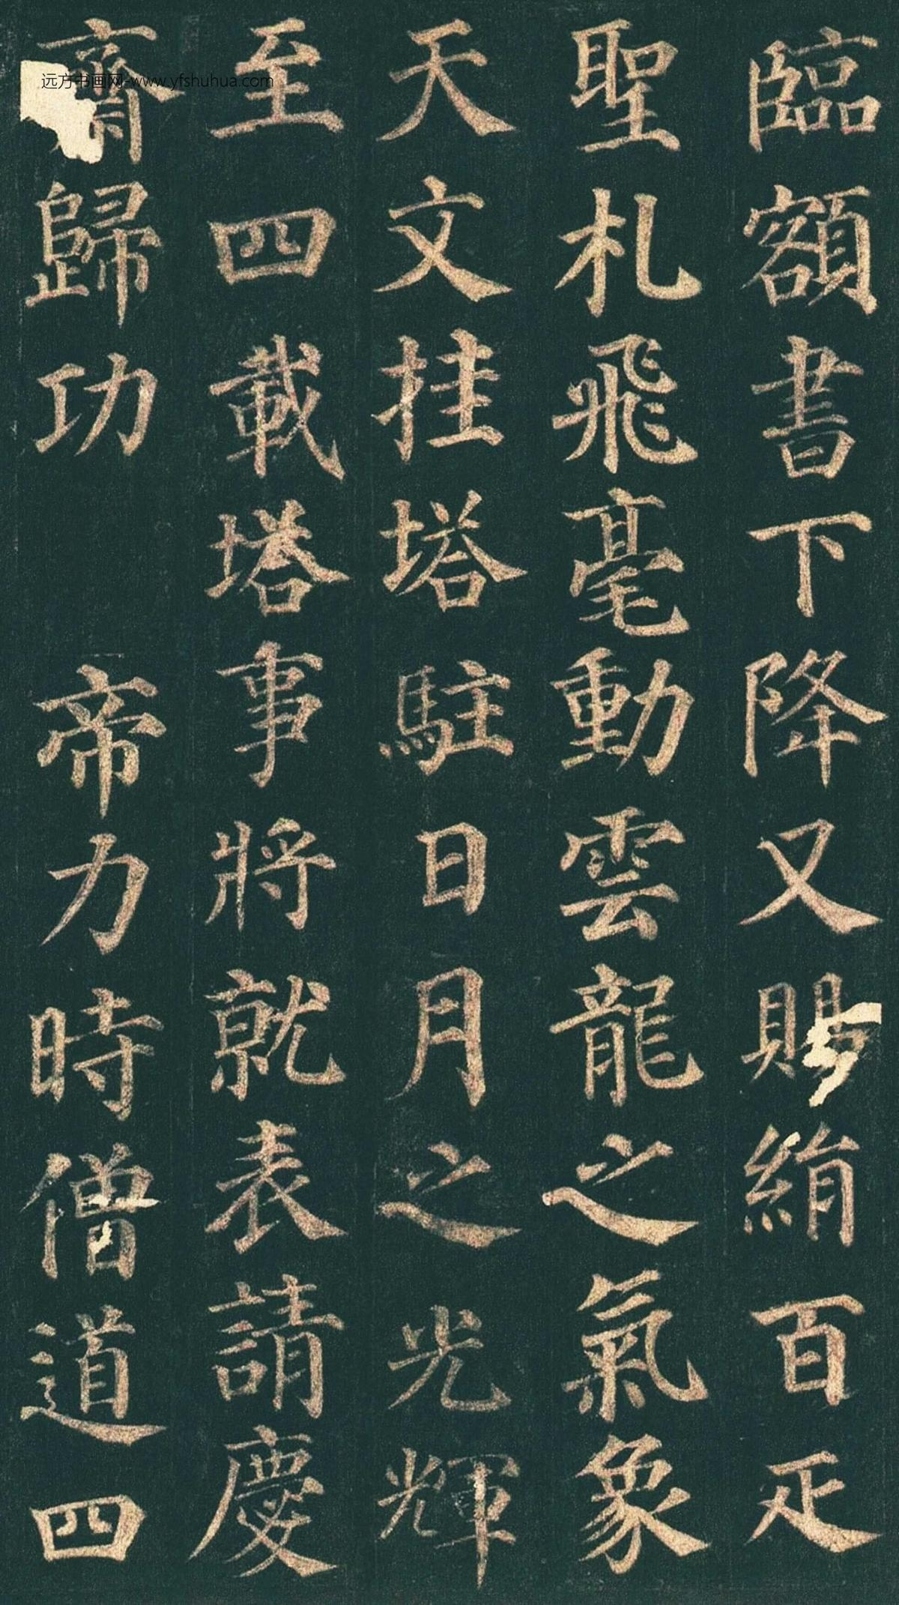 臨額書下降又賜絹百疋
聖札飛毫動雲龍之氣象
天文挂塔駐日月之光輝
至四載塔事將就表請慶
齋歸功 帝力時僧道四
远方书画网-www.yfshuhua.com